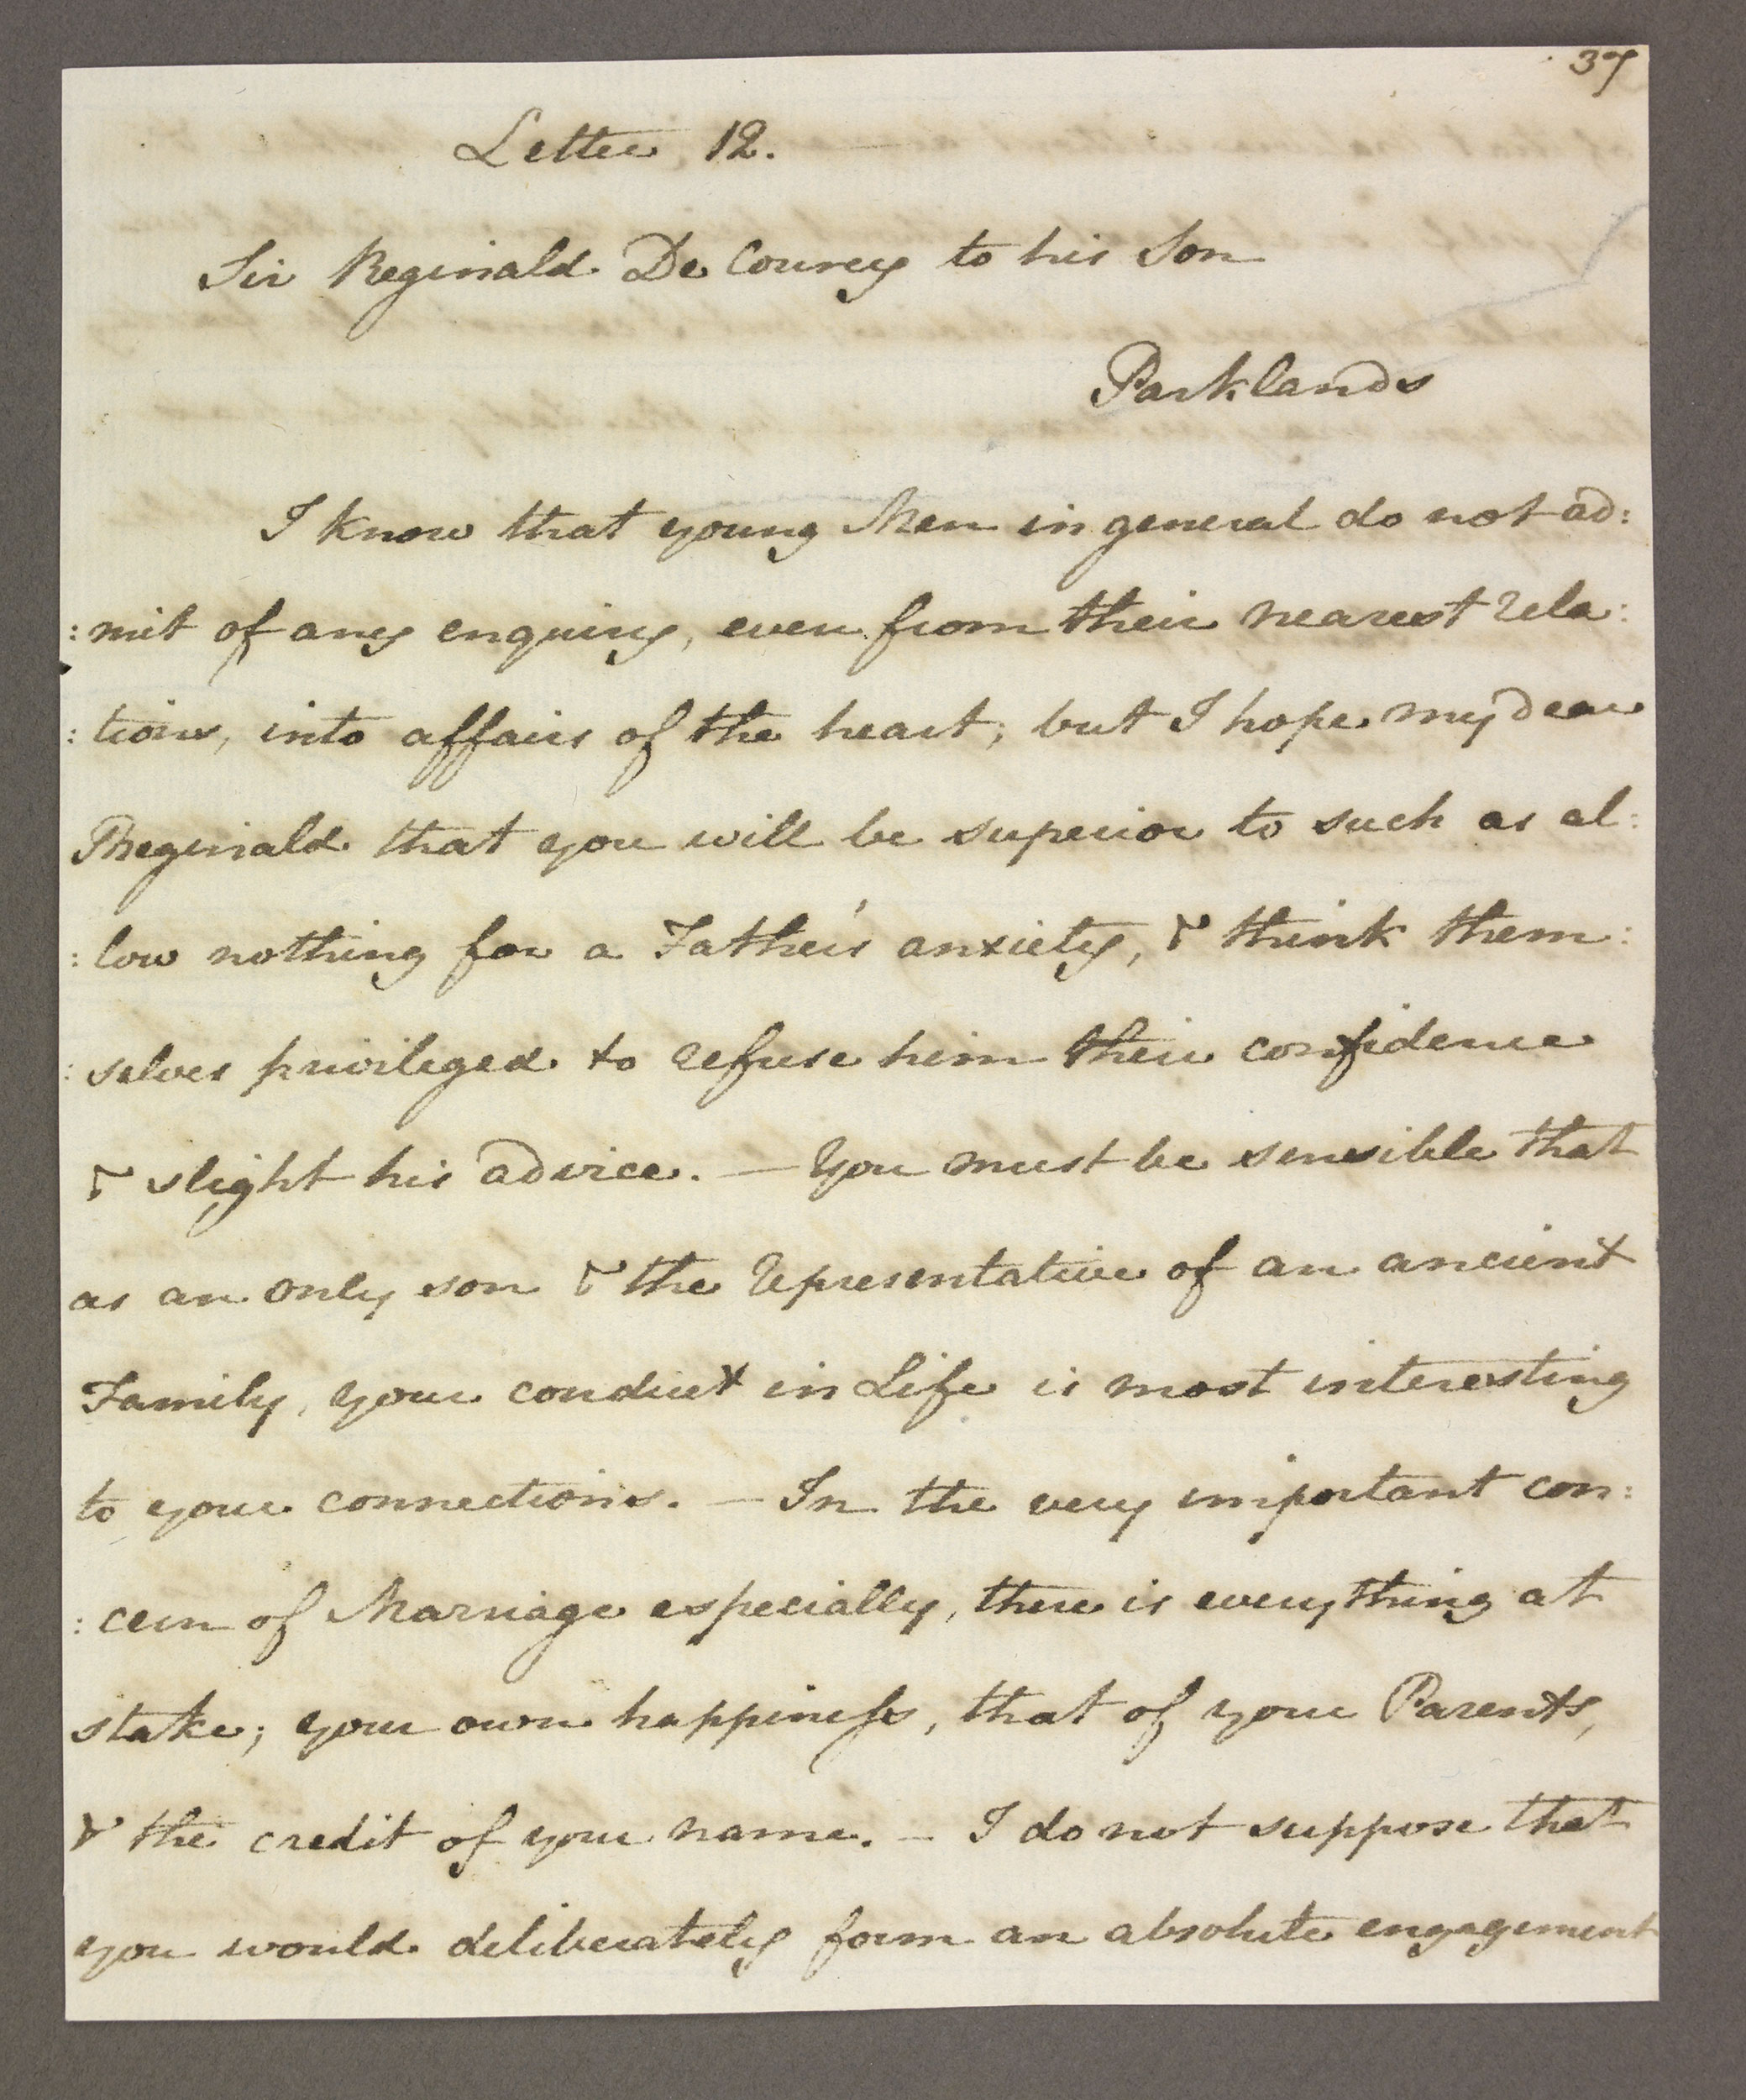 37
Letter 12.
Sir Reginald De Courcy to his Son
Parklands
I know that young Men in general do not ad:
:mit of any enquiry, even from their nearest rela:
:tions, into affairs of the heart; but I hope my dear
Reginald that you will be superior to such as al:
:low nothing for a Father's anxiety, & think them:
:selves privileged to refuse him their confidence
& slight his advice. — You must be sensible that
as an only son & the representative of an ancient
Family, your conduct in Life is most interesting
to your connections. — In the very important con:
:cern of Marriage especially, there is everything at
stake; your own happiness, that of your Parents,
& the credit of your name. — I do not suppose that
you would deliberately form an absolute engagement